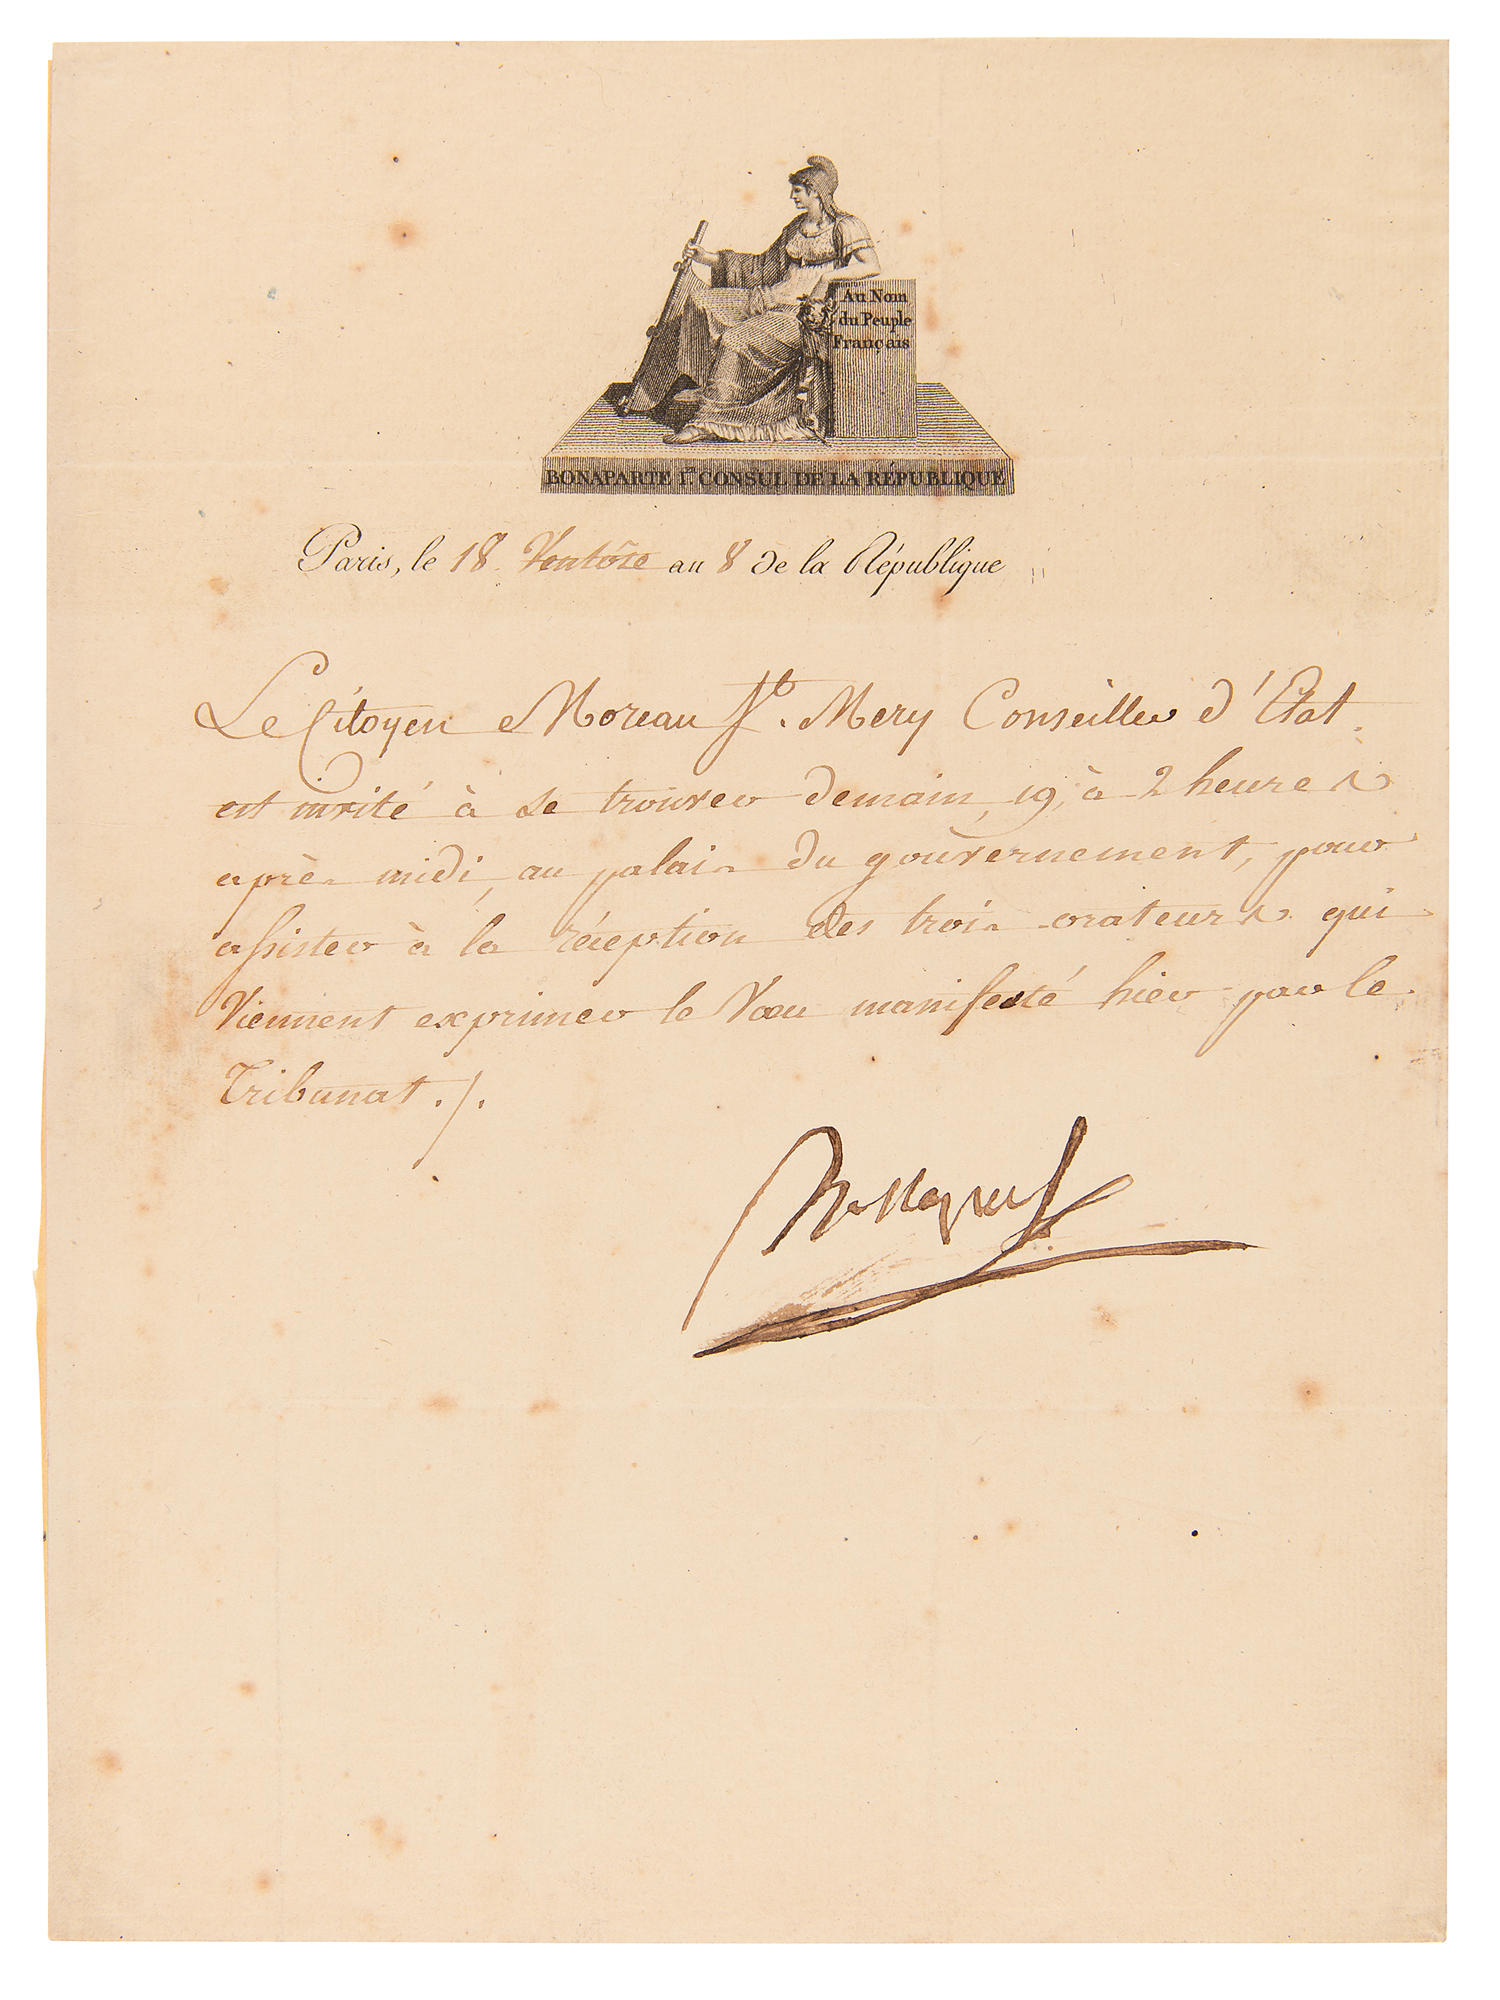 Au Nom
du Peuple
Français
BONAPARTE 1er. CONSUL DE LA RÉPUBLIQUE
Paris, le 18 Ventôse an 8 de la République
Le Citoyen Moreau St. Mery Conseiller d'Etat
est invité à se trouver demain, 19, à 2 heures
après midi, au palais du gouvernement, pour
assister à la réception des trois orateurs qui
Viennent exprimer le Vœu manifesté hier par le
Tribunat ./.
Bonaparte